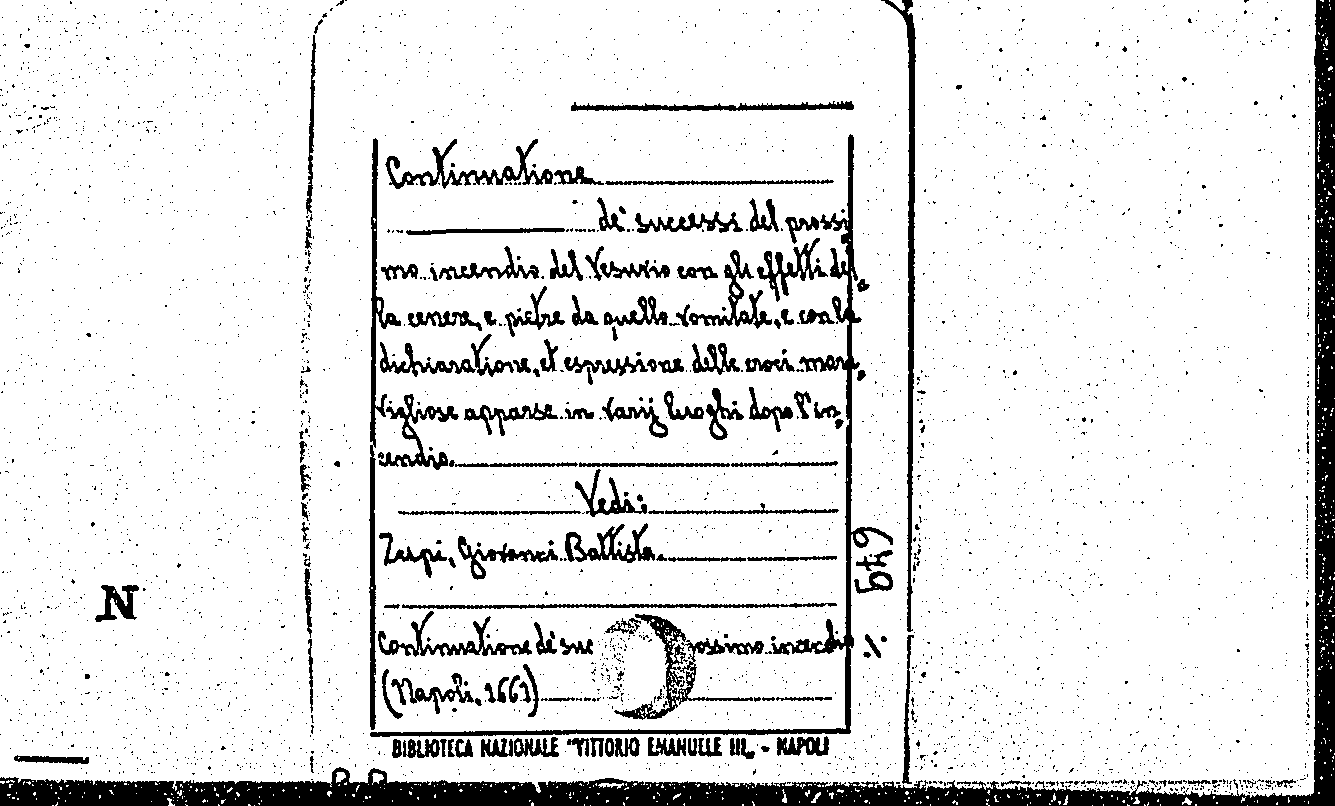 Continuatione
de' successi del prossi-
mo incendio del Vesuvio con gli effetti del-
la cenere, e pietre da quello vomitate, e con la
dichiaratione, et espressione delle croci mara-
vigliose apparse in varij luoghi dopo l'in-
cendio.
Vedi:
Zupi, Giovanni Battista.
Continuatione de' suc ossimo incendio ./.
(Napoli, 1661)
BIBLIOTECA NAZIONALE "VITTORIO EMANUELE III„ - NAPOLI
649
N